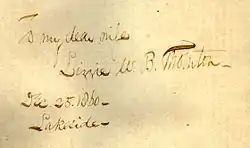 To my dear wife
Lizzie W. B. Thornton
Dec 25. 1860
Lakeside